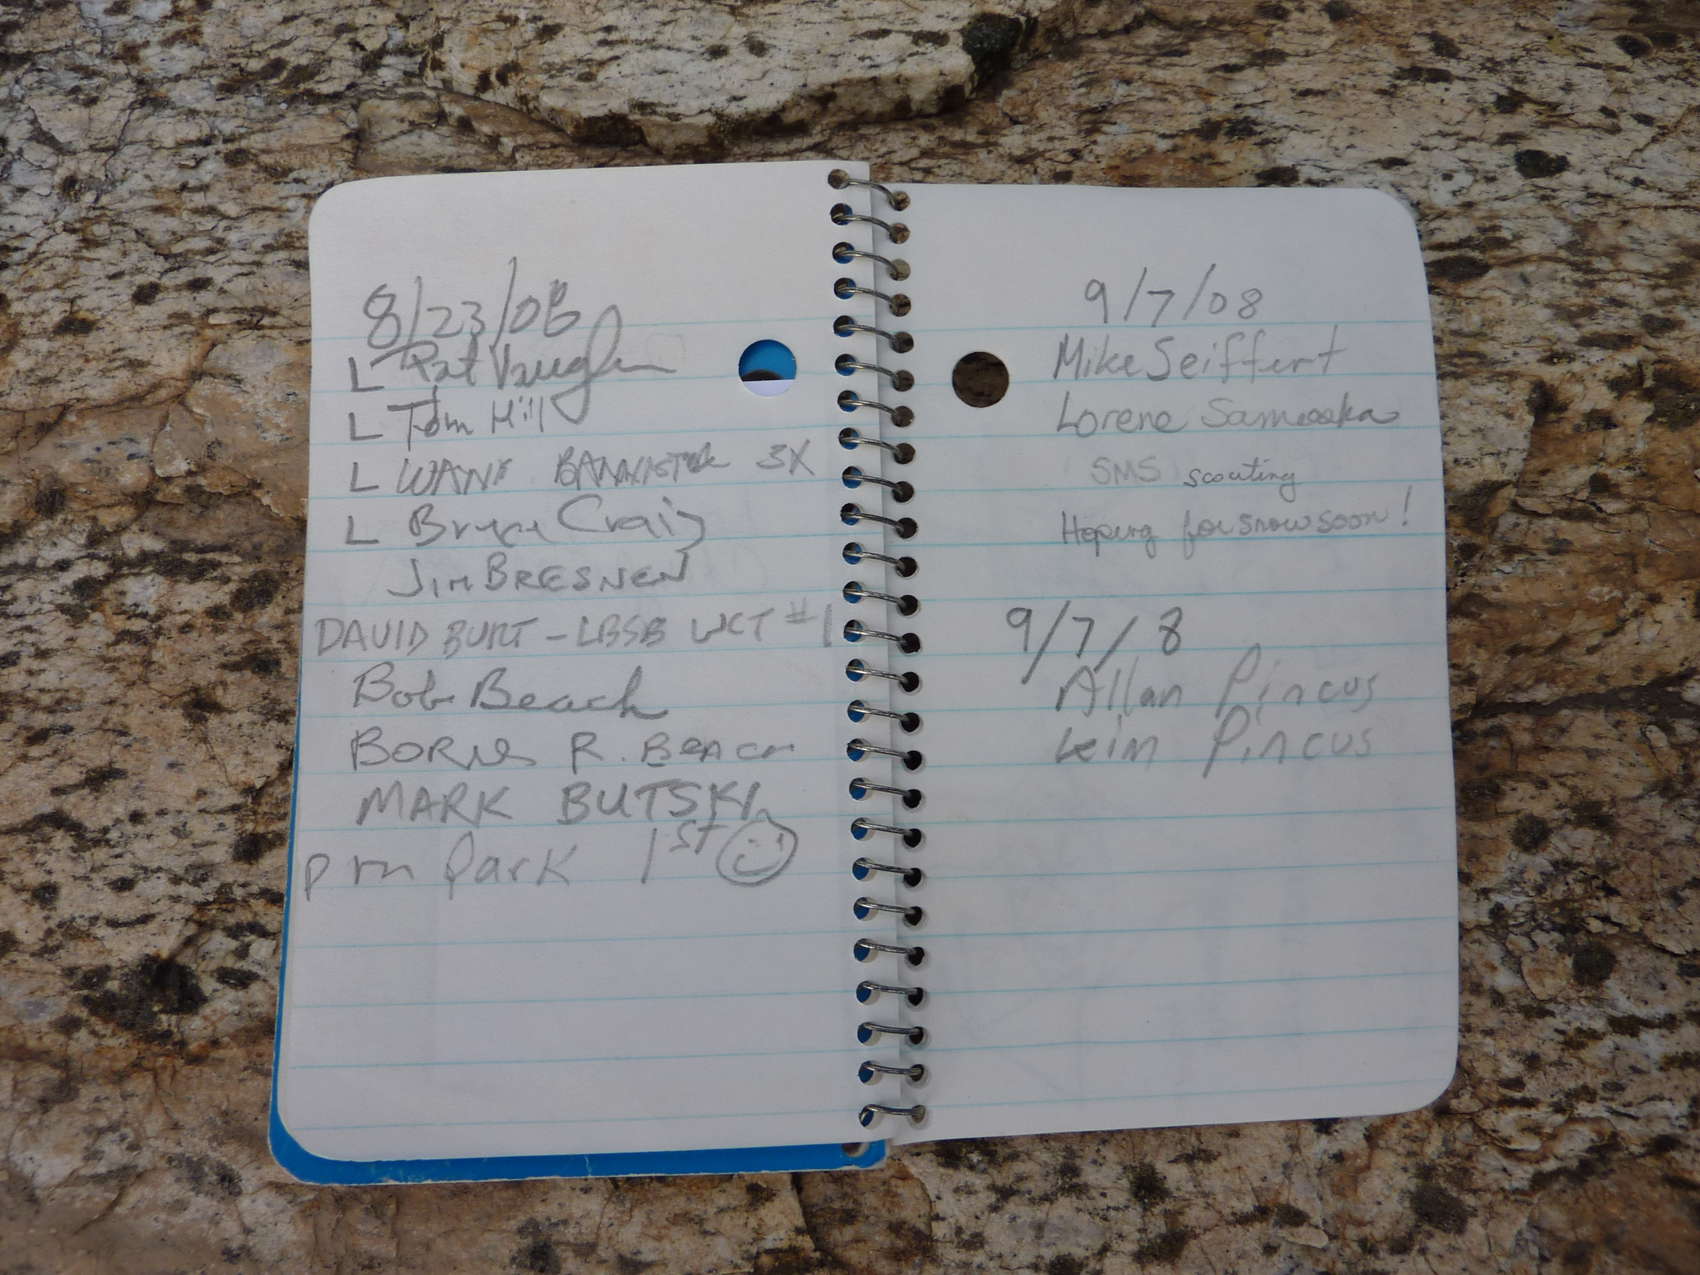 8/23/08
L Pat Vaughn
L Tom Hill
L BANNISTER 3X
L Bryce Craig
JIM BRESNEN
DAVID BURT - LBSB WCT #1
Bob Beach
R. BEACH
MARK BUTSKI
Park 1st
9/7/08
Mike Seiffert
Lorene
SMS scouting
Hoping for snow soon!
9/7/8
Allan Pincus
Pincus